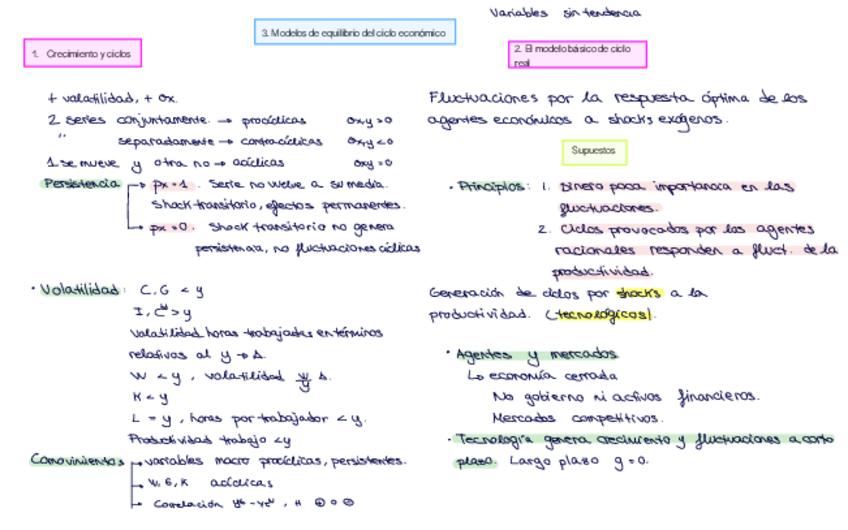 Variables sin tendencia
3. Modelos de equilibrio del ciclo económico
1. Crecimiento y ciclos
2. El modelo básico de ciclo
real
+ volatilidad, + σx.
2 series conjuntamente → procíclicas σx,y > 0
" separadamente → contracíclicas σx,y < 0
1 se mueve y otra no → acíclicas σxy = 0
Persistencia → ρx = 1. Serie no vuelve a su media.
Shock transitorio, efectos permanentes.
→ ρx = 0. Shock transitorio no genera
persistencia, no fluctuaciones cíclicas
• Volatilidad: C, G < y
I, > y
Volatilidad horas trabajadas en términos
relativos al y →
W < y, volatilidad
K < y
L = y, horas por trabajador < y.
Productividad trabajo < y
Comovimientos → variables macro procíclicas, persistentes.
→ W, G, K acíclicas
→ Correlación
Fluctuaciones por la respuesta óptima de los
agentes económicos a shocks exógenos.
Supuestos
• Principios: 1. Dinero poca importancia en las
fluctuaciones.
2. Ciclos provocados por los agentes
racionales responden a fluct. de la
productividad.
Generación de ciclos por shocks a la
productividad. (tecnológicos).
• Agentes y mercados
↳ economía cerrada
No gobierno ni activos financieros.
Mercados competitivos.
• Tecnología genera crecimiento y fluctuaciones a corto
plazo. Largo plazo g = 0.